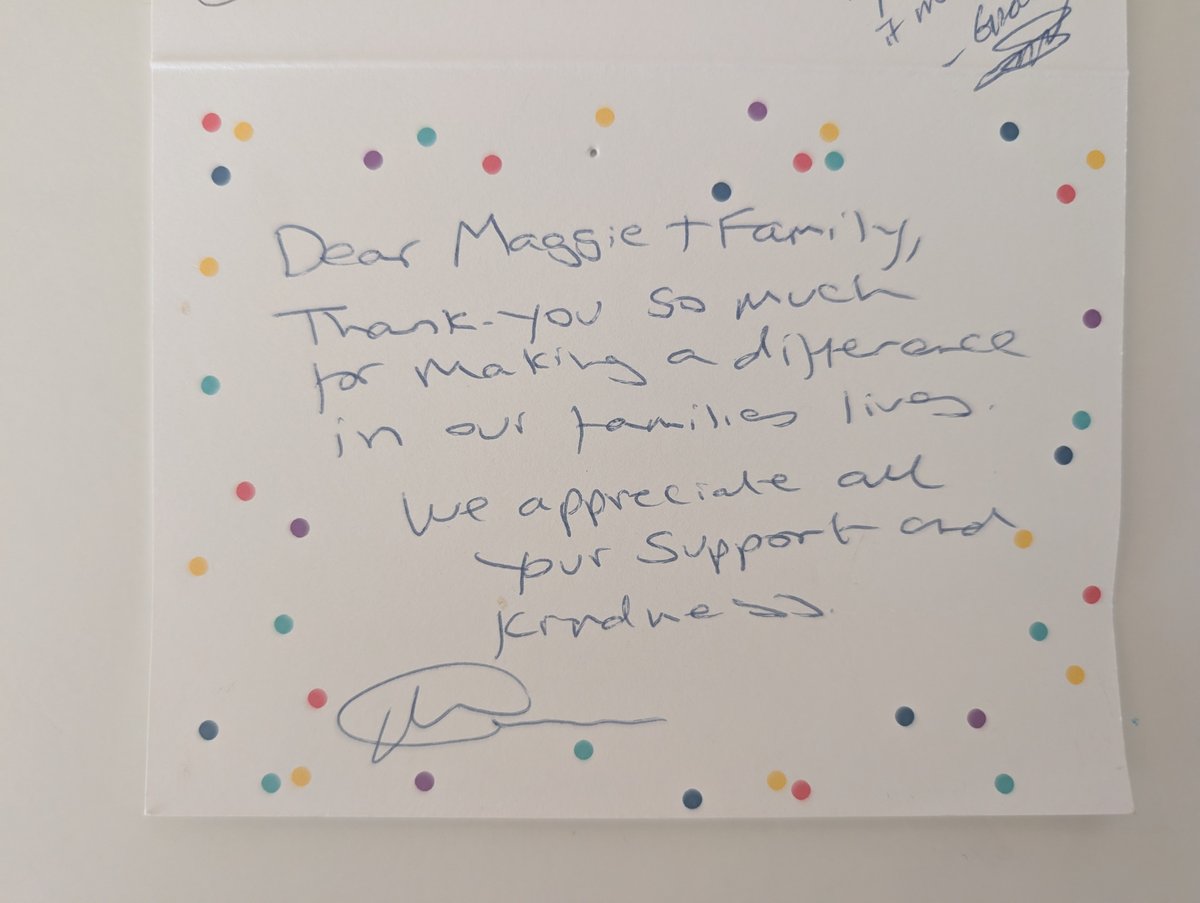 Dear Maggie + Family,
Thank-you so much
for making a difference
in our families lives.
We appreciate all
your support and
kindness.